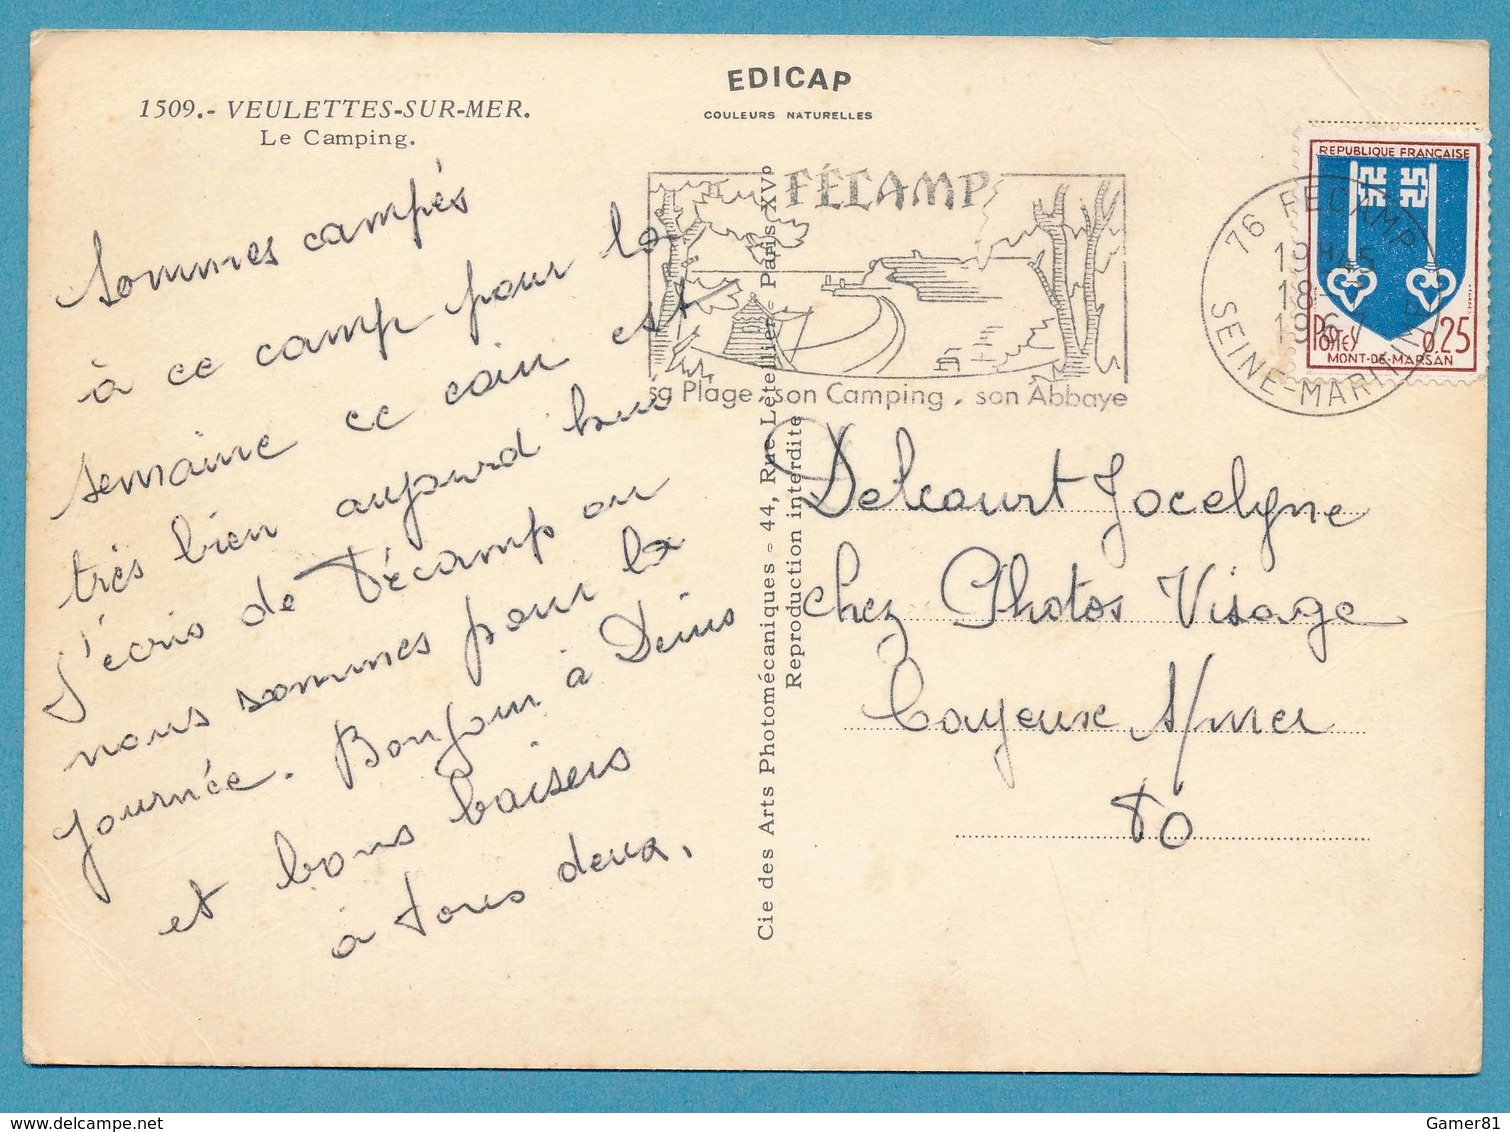 1509.- VEULETTES-SUR-MER.
Le Camping.
EDICAP
COULEURS NATURELLES
sommes campés
à ce camp pour la
semaine ce coin est
très bien aujourd hui
j'écris de Fécamp ou
nous sommes pour la
journée. Bonjour à Denis
et bons baisers
à tous deux.
Cie des Arts Photomécaniques - 44, Rue Letellier - Paris XVº
Reproduction interdite
FÉCAMP
sa Plage, son Camping, son Abbaye
76 FECAMP
18
SEINE-MARITIME
REPUBLIQUE FRANÇAISE
POSTES 0,25
MONT-DE-MARSAN
Delcourt Jocelyne
chez Photos Visage
Cayeux s/mer
80
Gamer81